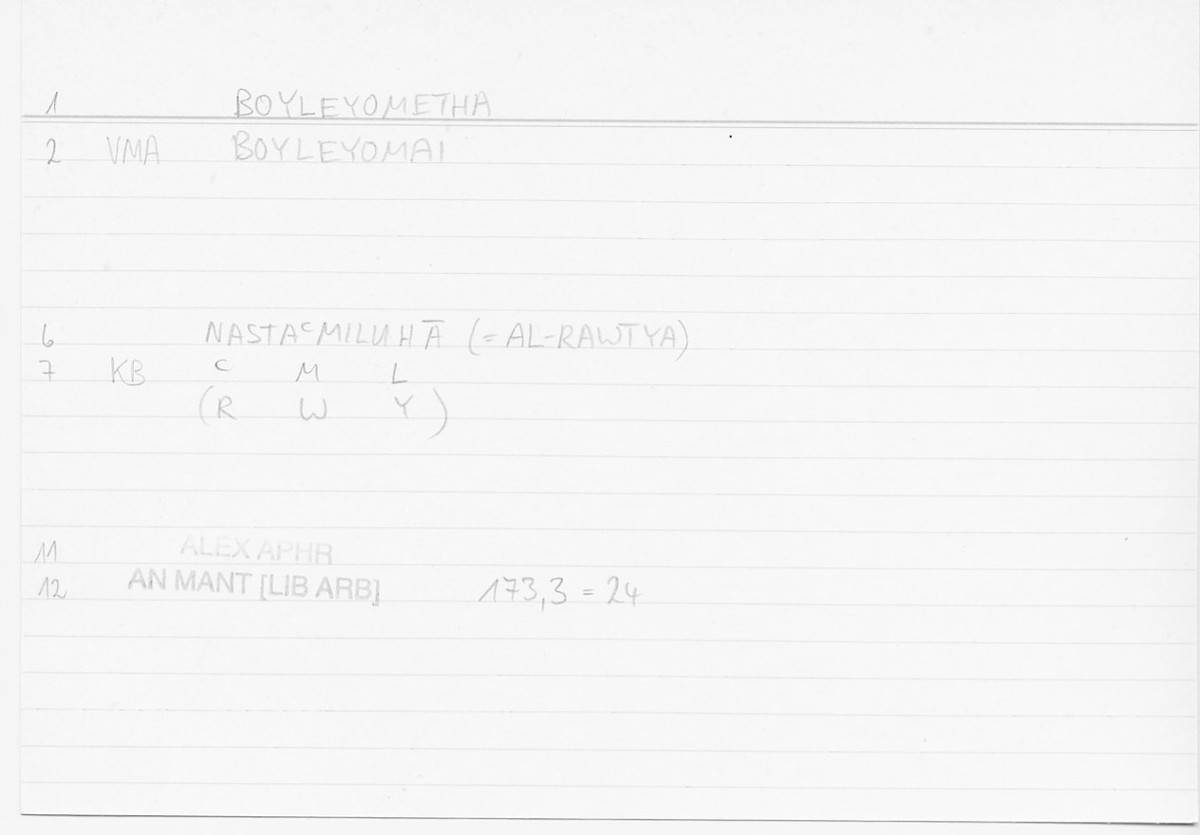 1 BOYLEYOMETHA
2 VMA BOYLEYOMAI
6 NASTAᶜMILUHĀ (= AL-RAWTYA)
7 KB ᶜ M L
(R W Y)
11 ALEX APHR
12 AN MANT [LIB ARB] 173,3 = 24